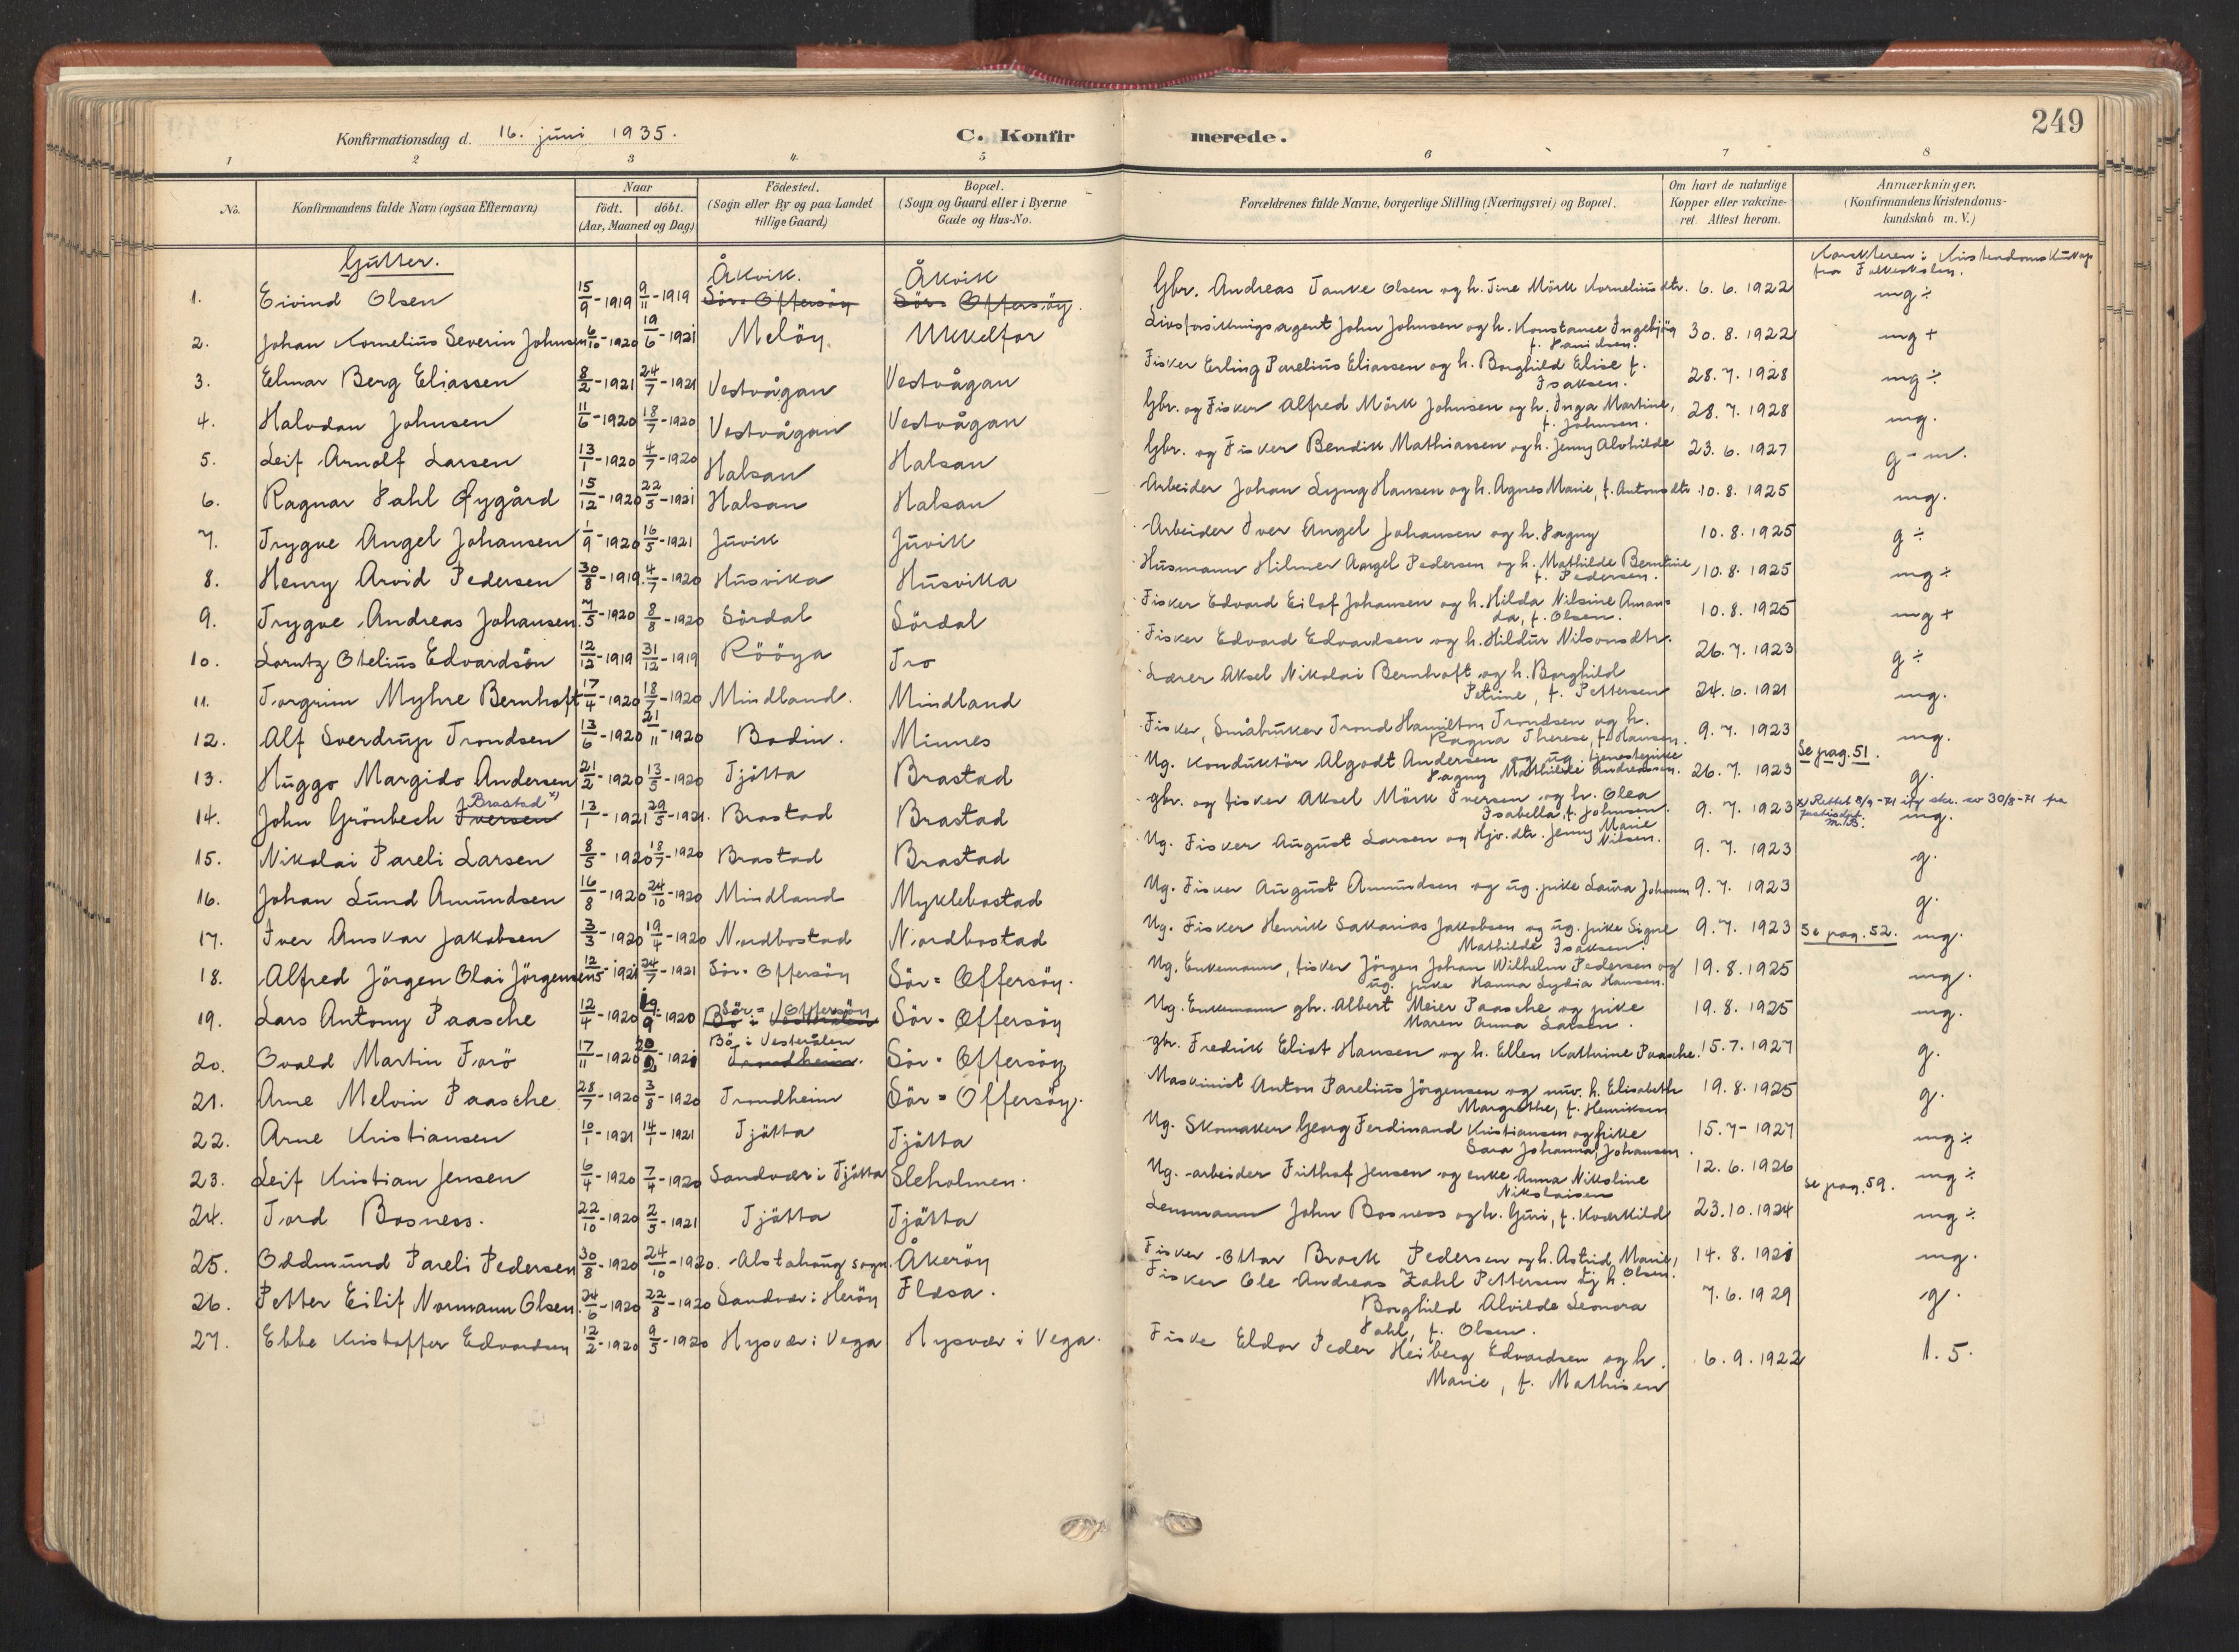 249
Konfirmationsdag d. 16. juni 1935. C. Konfirmerede.
1 2 3 4 5 6 7 8
No. Konfirmandens fulde Navn (ogsaa Efternavn) Naar födt. döbt. (Aar, Maaned og Dag) Födested. (Sogn eller By og paa Landet tillige Gaard) Bopæl. (Sogn og Gaard eller i Byerne Gade og Hus-No. Forældrenes fulde Navne, borgerlige Stilling (Næringsvei) og Bopæl. Om havt de naturlige Kopper eller vakcineret. Attest herom. Anmærkninger. (Konfirmandens Kristendomskundskab m. V.)
Gutter. Karakteren i Kristendomskunskap fra Folkeskolen.
1. Eivind Olsen 15/9-1919 9/11-1919 Åkvik. Sör-Offersöy Åkvik Sör-Offersöy. Gbr. Andreas Tanke Olsen og h. Jine Mörk Korneliusdtr. 6. 6. 1922 mg÷
2. Johan Kornelius Severin Johnsen 6/10-1920 19/6-1921 Melöy. Ukkelfor Livsforsikringsagent John Johnsen og h. Konstance Ingebjög f. Danielsen. 30. 8. 1922 mg+
3. Elmar Berg Eliassen 8/2-1921 24/7-1921 Vestvågan Vestvågan Fisker Erling Parelius Eliassen og h. Borghild Elise f. Isaksen. 28. 7. 1928 mg÷
4. Halvdan Johnsen 11/6-1920 18/7-1920 Vestvågan Vestvågan Gbr. og Fisker Alfred Mörk Johnsen og h. Inga Martine, f. Johnsen. 28. 7. 1928 mg.
5. Leif Arnolf Larsen 13/1-1920 4/7-1920 Halsan Halsan Gbr. og Fisker Bendik Mathiassen og h. Jenny Alvhilde 23. 6. 1927 g-m.
6. Ragnar Dahl Øygård 15/12-1920 22/5-1921 Halsan Halsan Arbeider Johan Lyng Hansen og h. Agnes Marie, f. Antonsdtr. 10. 8. 1925 mg.
7. Trygve Angel Johansen 1/9-1920 16/5-1921 Juvik Juvik Arbeider Iver Angel Johansen og h. Dagny 10. 8. 1925 g÷
8. Henry Arvid Pedersen 30/8-1919 4/7-1920 Husvika Husvika Husmann Hilmer Angel Pedersen og h. Mathilde Berntine, f. Pedersen. 10. 8. 1925 mg÷
9. Trygve Andreas Johansen. 7/5-1920 8/8-1920 Sördal Sördal Fisker Edvard Eilof Johansen og h. Hilda Nilsine Amanda, f. Olsen. 10. 8. 1925 mg+
10. Lorntz Otelius Edvardsön 12/12-1919 31/12-1919 Rööya Tro Fisker Edvard Edvardsen og h. Hildur Nilsonsdtr. 26. 7. 1923 g÷
11. Torgrim Myhre Bernhoft 17/4-1920 18/7-1920 Mindland. Mindland Lærer Aksel Nikolai Bernhoft og h. Borghild Petrine, f. Pettersen 24. 6. 1921 mg.
12. Alf Sverdrup Trondsen 13/6-1920 21/11-1920 Bodin. Minnes Fisker, Småbruker Trond Hamilton Trondsen og h. Ragna Therese, f. Hansen. 9. 7. 1923 mg.
13. Huggo Margido Andersen 21/2-1920 13/5-1920 Tjötta Brastad Ug. Konduktör Algodt Andersen og ug. tjenestepike Dagny Mathilde Andreassen. 26. 7. 1923 Se pag. 51. g.
14. John Grönbech Iversen Brastad x) 13/1-1921 29/5-1921. Brastad Brastad gbr. og fisker Aksel Mörk Iversen og h. Olea Isabella, f. Johnsen. 9. 7. 1923 x) Rettet 8/9-71 ifg skr. av 30/8-71 fra justisdpt. M.B. mg.
15. Nikolai Pareli Larsen 8/5-1920 18/7-1920 Brastad Brastad Ug. Fisker August Larsen og Hjv. dtr. Jenny Marie Nilsen. 9. 7. 1923 g.
16. Johan Lund Amundsen 16/8-1920 24/10-1920 Mindland Myklebostad Ug. Fisker August Amundsen og ug. pike Laura Johansen 9. 7. 1923 g.
17. Iver Anskar Jakobsen 3/3-1920 19/4-1920 Nordbostad Nordbostad Ug. Fisker Henrik Sakarias Jakobsen og ug. pike Signe Mathilde Isaksen. 9. 7. 1923 Se pag. 52. mg.
18. Alfred Jörgen Olai Jörgensen 12/5-1921 24/7-1921 Sör-Offersöy Sör-Offersöy. Ug. Enkemann, fisker Jörgen Johan Wilhelm Pedersen og ug. pike Hanna Lydia Hansen. 19. 8. 1925 mg.
19. Lars Antony Paasche 12/4-1920 19/9-1920 Sör-Offersöy Bö i Vesterålen Sör-Offersöy Ug. Enkemann gbr. Albert Meier Paasche og pike Maren Anna Larsen. 19. 8. 1925 mg.
20. Osvald Martin Forö 17/11-1920 Bö i Vesterålen Trondheim. Sör-Offersöy gbr. Fredrik Eliot Hansen og h. Ellen Kathrine Paasche. 15. 7. 1927 g.
21. Arne Melvin Paasche 28/7-1920 3/8-1920 Trondheim Sör-Offersöy. Maskinist Anton Parelius Jörgensen og nuv. h. Elisabeth Margrethe, f. Henriksen 19. 8. 1925 g.
22. Arne Kristiansen 10/1-1921 14/1-1921 Tjötta Tjötta Ug. Skomaker Georg Ferdinand Kristiansen og pike Sara Johanna Johansen 15. 7-1927 mg÷
23. Leif Kristian Jensen 6/4-1920 7/4-1920 Sandvær i Tjötta Sleholmen. Ug. arbeider Frithof Jensen og enke Anna Nikoline Nikolaisen 12. 6. 1926 Se pag. 59. mg÷
24. Tord Bosness. 22/10-1920 2/5-1921 Tjötta Tjötta Lensmann John Bosness og h. Guri, f. Kverkild 23. 10. 1924 mg÷
25. Oddmund Pareli Pedersen 30/8-1920 24/10-1920. Alstahaug sogn. Åkeröy Fisker Ottar Brock Pedersen og h. Astrid Marie, Olsen. 14. 8. 1921 mg.
26. Petter Eilif Normann Olsen. 24/6-1920 22/8-1920 Sandvær i Heröy Flæsa. Fisker Ole Andreas Zahl Pettersen og h. Borghild Alvilde Leonora Dahl, f. Olsen. 7. 6. 1929 g.
27. Ebbe Kristoffer Edvardsen 12/2-1920 9/5-1920 Hysvær i Vega Hysvær i Vega. Fiske Eldor Peder Heiberg Edvardsen og h. Marie, f. Mathisen 6. 9. 1922 1. 5.